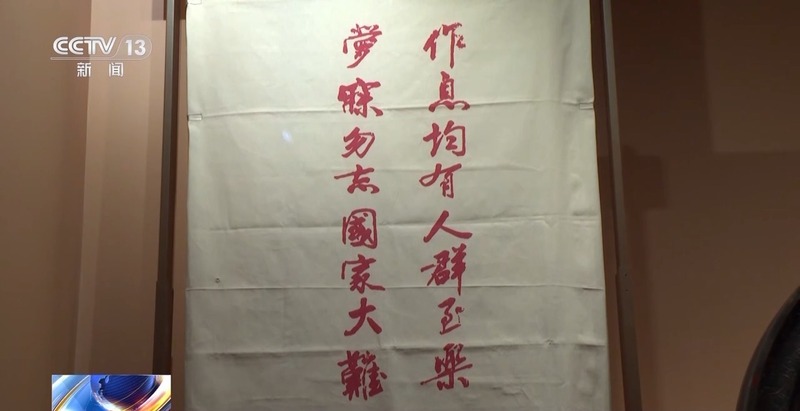 CCTV 13
新闻
作息均有人群至樂
夢寐勿忘國家大難